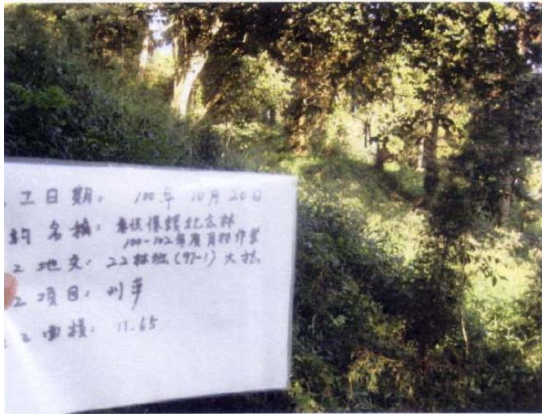 工日期: 100年10月20日
約名稱: 紀念林
100-102年度育林作業
地交: 22林班(97-1)大
項目: 刈草
面積: 11.65